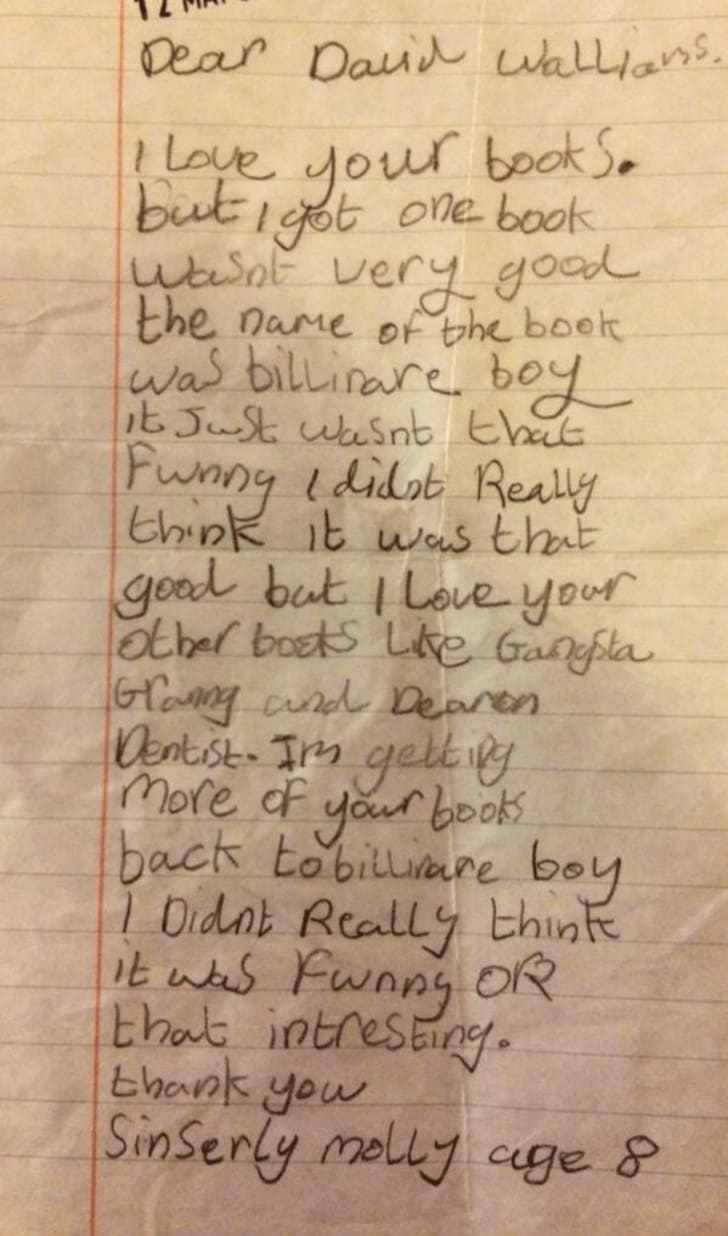 12 MAR
Dear David Walliams.
I Love your books.
but I got one book
wasnt very good
the name of the book
was billinare boy
it Just wasnt that
Funny I didnt Really
think it was that
good but I Love your
other books Like Gangsta
Granny and Deamon
Dentist. Im getting
more of your books
back to billinare boy
I Didnt Really think
it was Funny OR
that intresting.
thank you
Sinserly molly age 8